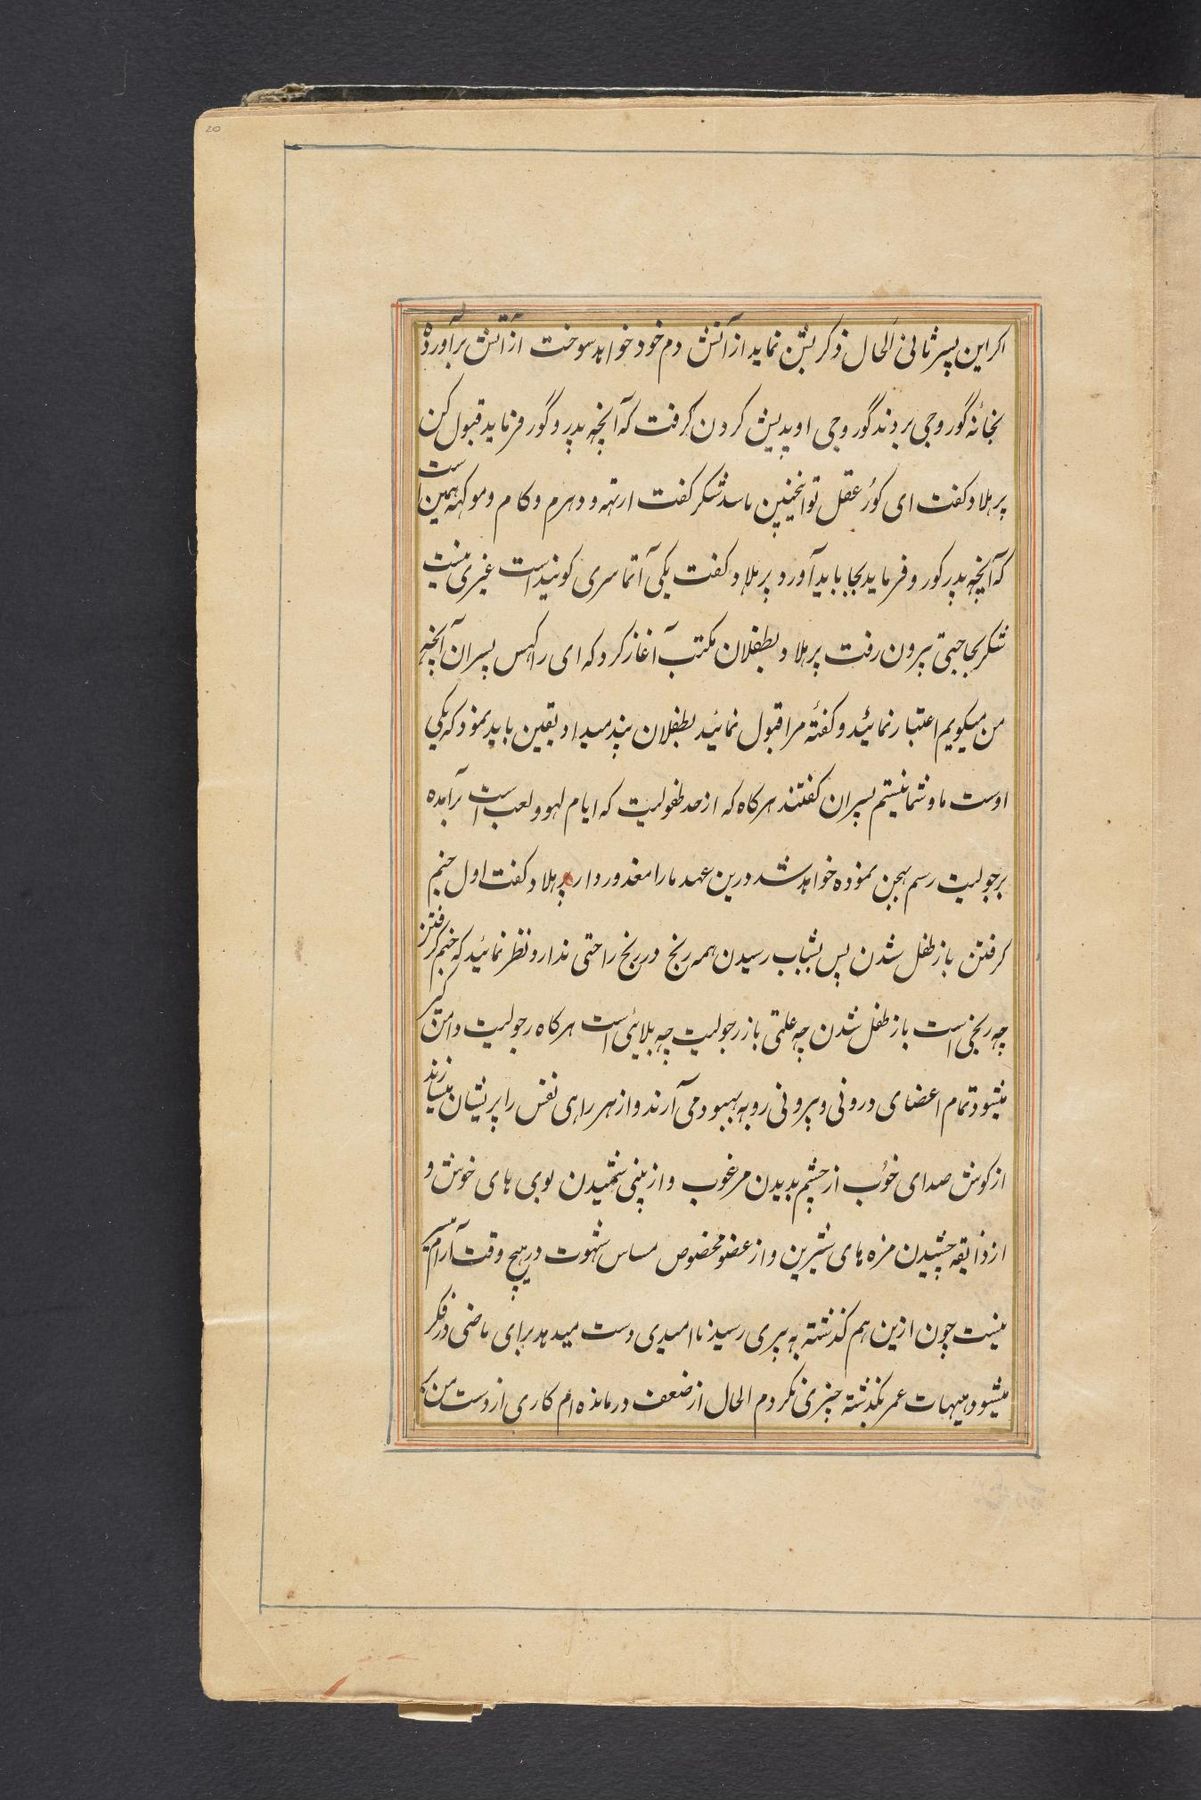 20
اکر این پسر ثانی الحال ذکر بشن نماید از آتش دم خود خواهد سوخت از آتش برآورده
بخانهٔ گوروجی بردند گوروجی اوپدیش کردن گرفت که آنچه پدر و گور فرماید قبول کن
پرهلاد کفت ای کور عقل تو اینچنین باشد شکر کفت ارتهه و دهرم و کام و موکهه همین است
که آنچه پدر کور و فرماید بجا باید آورد پرهلاد کفت یکی آتما سری کوبند است غیری نیست
شکر بحاجتی بیرون رفت پرهلاد بطفلان مکتب آغاز کرد که ای راکهس پسران آنچه
من میکویم اعتبار نمائید و کفتهٔ مرا قبول نمائید بطفلان پند میداد بقین باید نمود که یکی
اوست ما و شما نیستیم پسران کفتند هرکاه که از حد طفولیت که ایام لهو و لعب است برآمده
برجولیت رسم بهجن نموده خواهد شد درین عهد ما را معذور دار پرهلاد کفت اول جنم
کرفتن باز طفل شدن پس بشباب رسیدن همه رنج در رنج راحتی ندارد نظر نمائید که جنم کرفتن
چه رنجی است باز طفل شدن چه علتی باز رجولیت چه بلائی است هرکاه رجولیت دامن کیر
میشود تمام اعضای درونی و بیرونی رو به بهبود می آرند و از هر راهی نفس را پریشان میسازند
از کوش صدای خوب از چشم بدیدن مرغوب و از بینی شمیدن بوی های خوش و
از ذایقه چشیدن مزه های شیرین و از عضو مخصوص مساس شهوت در هیچ وقت آرام میسر
نیست چون ازین هم کذشته به پیری رسید ناامیدی دست میدهد برای ماضی در فکر
میشود هیهات عمر بکذشته چیزی نکردم الحال از ضعف درمانده ام کاری از دست من